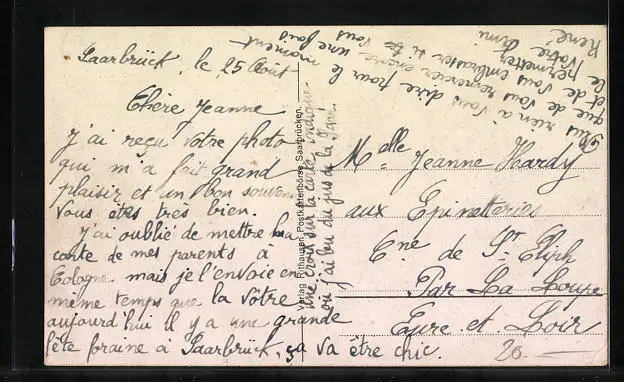 Saarbrück, le 25 Août
Chère Jeanne
J'ai reçu votre photo
qui m'a fait grand
plaisir et un bon souvenir
Vous êtes très bien.
J'ai oublié de mettre la
carte de mes parents à
Cologne mais je l'envoie en
même temps que la Vôtre
aujourd'hui il y a une grande
fête foraine à Saarbrück, ça va être chic.
une croix sur la carte indique
où j'ai bu du jus de la
Plus rien à Vous dire pour le moment
que de vous remercier encore une fois
et de vous embrasser si Vous
le permettez
Votre Ami
René
Verlag Rithausen, Postkartenbörse, Saarbrücken.
Melle Jeanne Hardy
aux Epinetteries
Cne de St Eliph
Par La Loupe
Eure et Loir
20.—